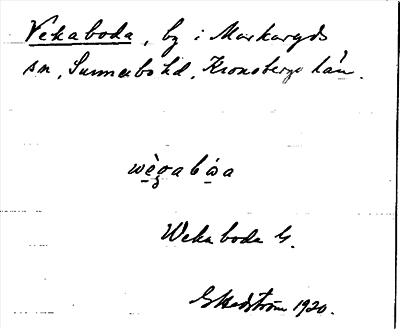 Vekaboda, by i Markaryds
sn, Sunnerbo hd, Kronobergs län.
Weka boda G.
GHedström 1920.